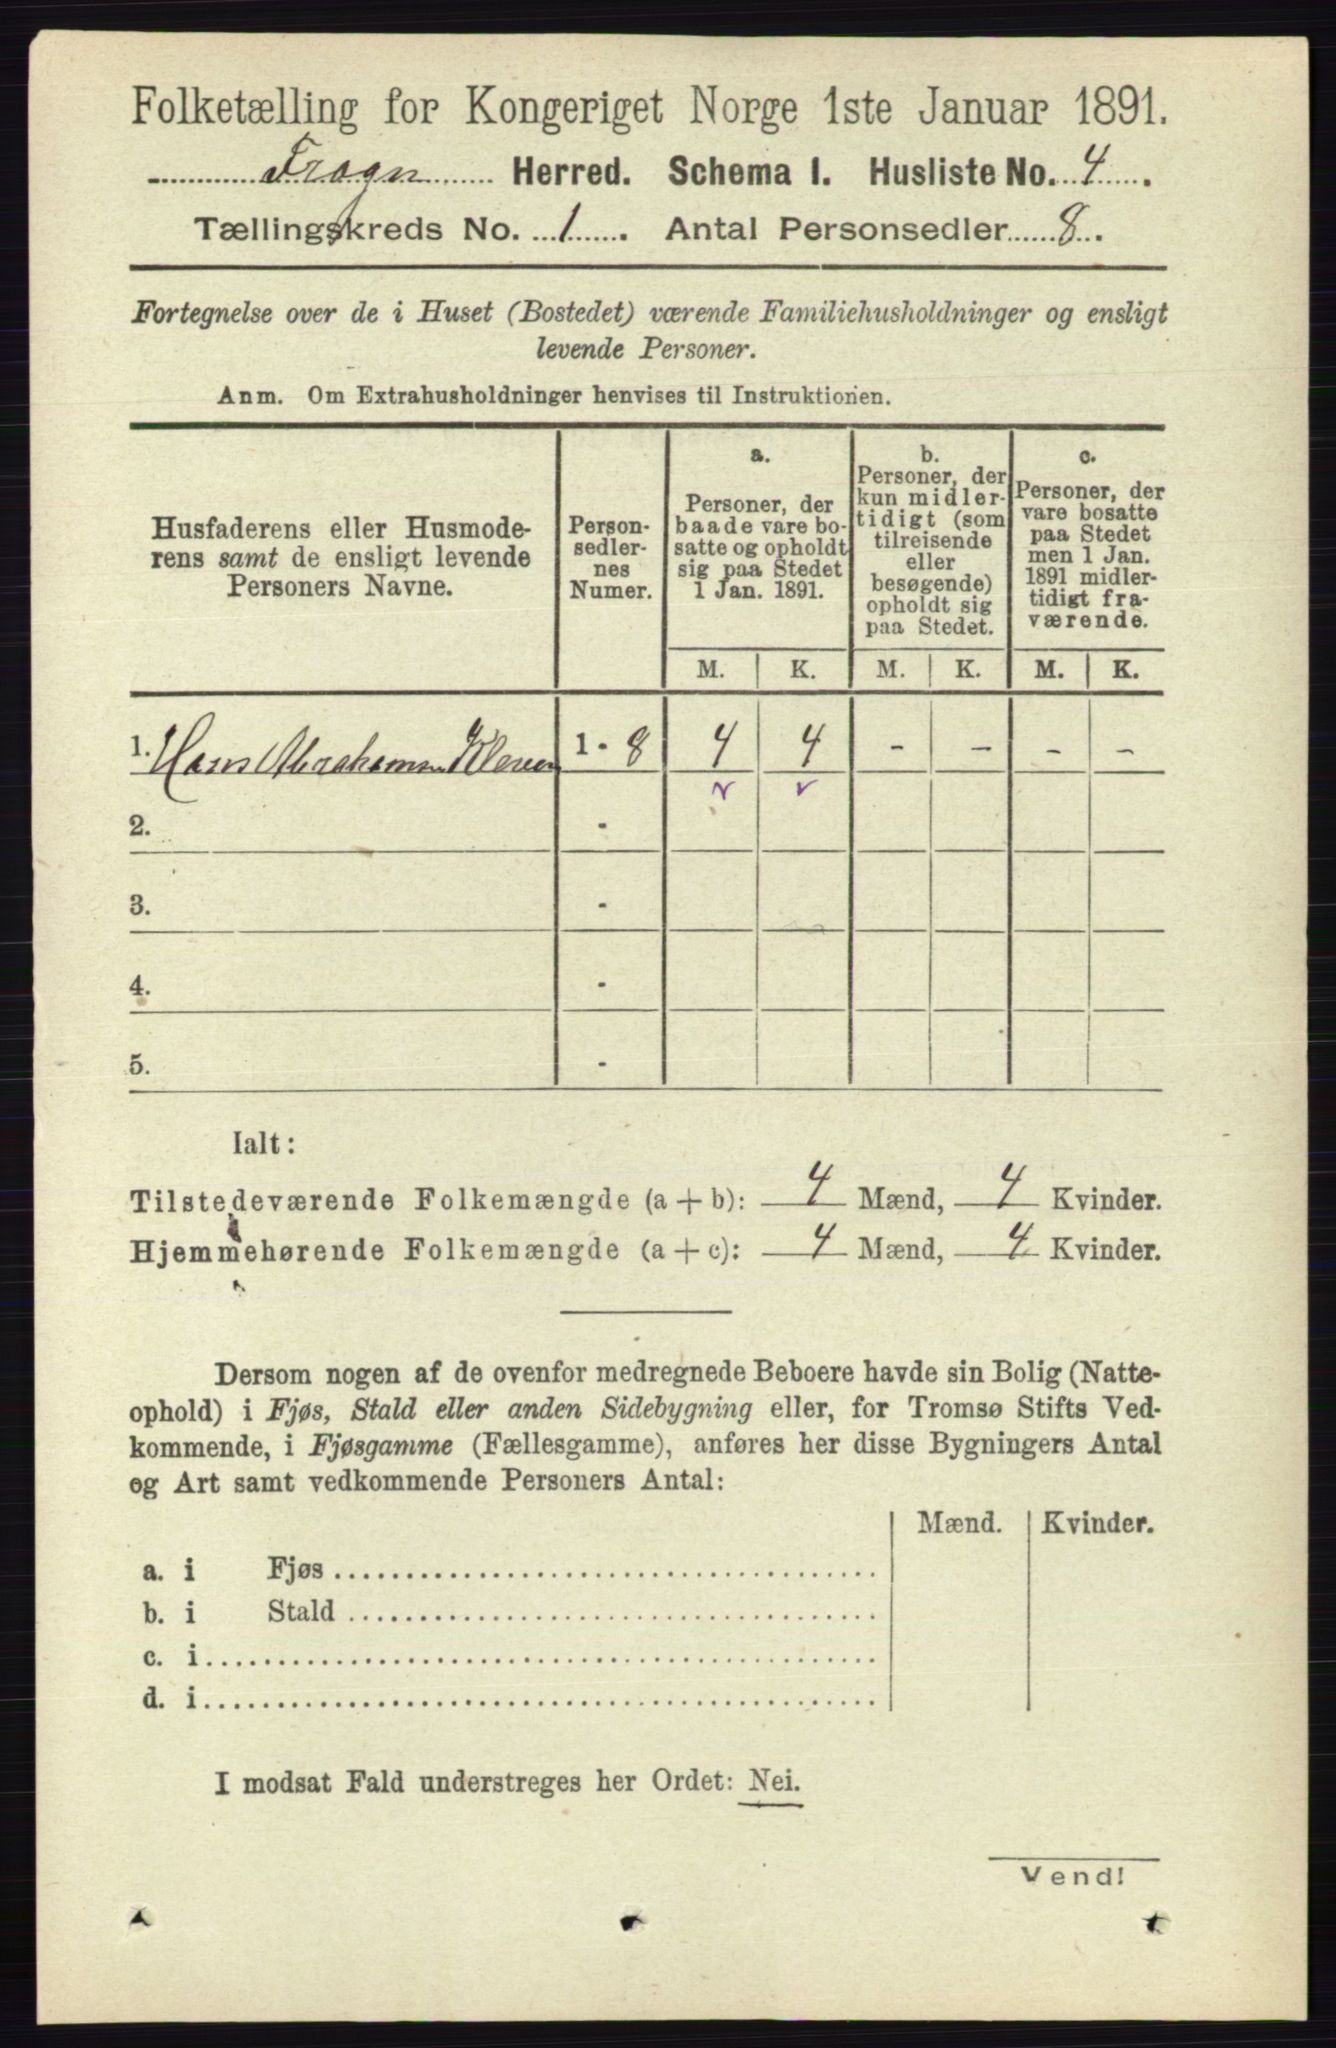 Folketælling for Kongeriget Norge 1ste Januar 1891.
Frogn Herred. Schema I. Husliste No. 4.
Tællingskreds No. 1. Antal Personsedler 8.
Fortegnelse over de i Huset (Bostedet) værende Familiehusholdninger og ensligt
levende Personer.
Anm. Om Extrahusholdninger henvises til Instruktionen.
Husfaderens eller Husmode-
rens samt de ensligt levende
Personers Navne.
Person-
sedler-
nes
Numer.
a.
Personer, der
baade vare bo-
satte og opholdt
sig paa Stedet
1 Jan. 1891.
b.
Personer, der
kun midler-
tidigt (som
tilreisende
eller
besøgende)
opholdt sig
paa Stedet.
c.
Personer, der
vare bosatte
paa Stedet
men 1 Jan.
1891 midler-
tidigt fra-
værende.
M. K. M. K. M. K.
1. Hans Abrahamsen Kleven 1 - 8 4 4 - - - -
2. -
3. -
4. -
5. -
Ialt:
Tilstedeværende Folkemængde (a + b): 4 Mænd, 4 Kvinder.
Hjemmehørende Folkemængde (a + c): 4 Mænd, 4 Kvinder.
Dersom nogen af de ovenfor medregnede Beboere havde sin Bolig (Natte-
ophold) i Fjøs, Stald eller anden Sidebygning eller, for Tromsø Stifts Ved-
kommende, i Fjøsgamme (Fællesgamme), anføres her disse Bygningers Antal
og Art samt vedkommende Personers Antal:
Mænd. Kvinder.
a. i Fjøs
b. i Stald
c. i
d. i
I modsat Fald understreges her Ordet: Nei.
Vend!